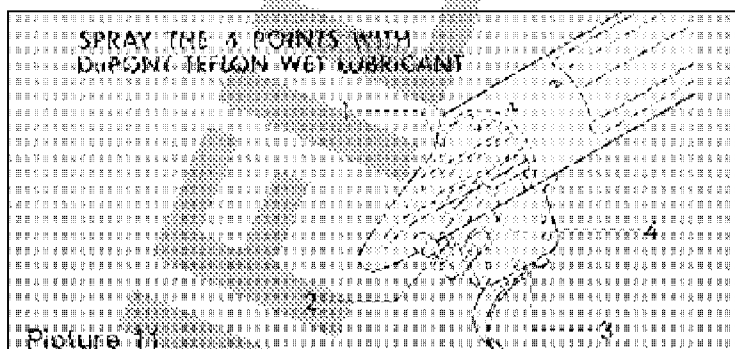 SPRAY THE 4 POINTS WITH
DUPONT TEFLON WET LUBRICANT
1
4
2
3
Picture 11